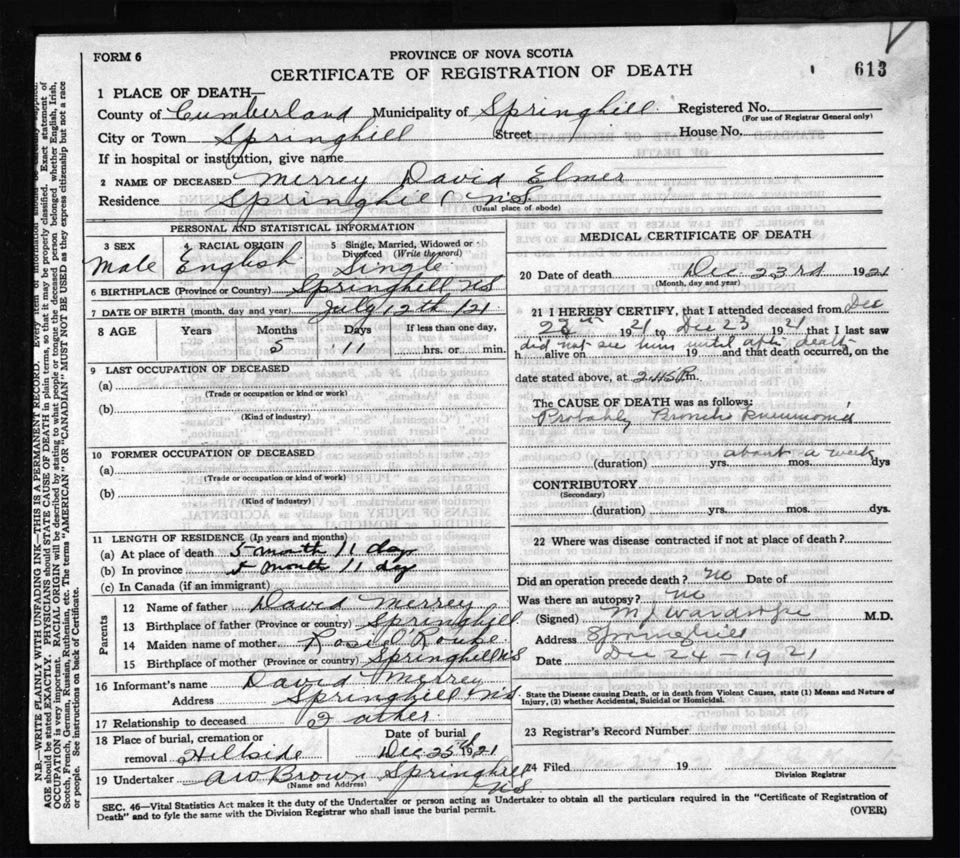 FORM 6
PROVINCE OF NOVA SCOTIA
CERTIFICATE OF REGISTRATION OF DEATH
613
1 PLACE OF DEATH—
County of Cumberland Municipality of Springhill Registered No.
(For use of Registrar General only)
City or Town Springhill Street House No.
If in hospital or institution, give name
2 NAME OF DECEASED Merrey David Elmer
Residence Springhill N.S.
(Usual place of abode)
PERSONAL AND STATISTICAL INFORMATION
3 SEX Male
4 RACIAL ORIGIN English
5 Single, Married, Widowed or Divorced (Write the word) Single
6 BIRTHPLACE (Province or Country) Springhill NS
7 DATE OF BIRTH (month, day and year) July 12th 121
8 AGE Years Months Days If less than one day,
5 11 hrs. or min.
9 LAST OCCUPATION OF DECEASED
(a)
(Trade or occupation or kind or work)
(b)
(Kind of industry)
10 FORMER OCCUPATION OF DECEASED
(a)
(Trade or occupation or kind or work)
(b)
(Kind of industry)
11 LENGTH OF RESIDENCE (In years and months)
(a) At place of death 5 month 11 day
(b) In province 5 month 11 day
(c) In Canada (if an immigrant)
Parents
12 Name of father David Merrey
13 Birthplace of father (Province or country) Springhill
14 Maiden name of mother O'Rourke
15 Birthplace of mother (Province or country) Springhill NS
16 Informant's name David Merrey
Address Springhill NS
17 Relationship to deceased Father
18 Place of burial, cremation or removal Hillside
Date of burial Dec 25th 1921
19 Undertaker A W Brown Springhill
(Name and Address) N.S.
MEDICAL CERTIFICATE OF DEATH
20 Date of death Dec 23rd 1921
(Month, day and year)
21 I HEREBY CERTIFY, that I attended deceased from Dec
1921 to Dec 23 1921 that I last saw
did not see him until after death
h alive on 19 and that death occurred, on the
date stated above, at 2.45 P m.
The CAUSE OF DEATH was as follows:
Probably Broncho Pneumonia
about a week
(duration) yrs. mos. dys
CONTRIBUTORY
(Secondary)
(duration) yrs. mos. dys.
22 Where was disease contracted if not at place of death?
Did an operation precede death? no Date of
Was there an autopsy? no
(Signed) M.D.
Address Springhill
Date Dec 24 - 1921
State the Disease causing Death, or in death from Violent Causes, state (1) Means and Nature of
Injury, (2) whether Accidental, Suicidal or Homicidal.
23 Registrar's Record Number
24 Filed 19
Division Registrar
SEC. 46—Vital Statistics Act makes it the duty of the Undertaker or person acting as Undertaker to obtain all the particulars required in the "Certificate of Registration of
Death" and to fyle the same with the Division Registrar who shall issue the burial permit.
(OVER)
N.B.—WRITE PLAINLY WITH UNFADING INK—THIS IS A PERMANENT RECORD. Every item of information should be carefully supplied.
AGE should be stated EXACTLY. PHYSICIANS should STATE CAUSE OF DEATH in plain terms, so that it may be properly classified. Exact statement of
OCCUPATION is very important. RACIAL ORIGIN will be described by stating to what people or tongue the deceased person belonged whether English, Irish,
Scotch, French, German, Russian, Ruthenian, etc. The terms "AMERICAN" OR "CANADIAN" MUST NOT BE USED as they express citizenship but not a race
or people. See instructions on back of Certificate.